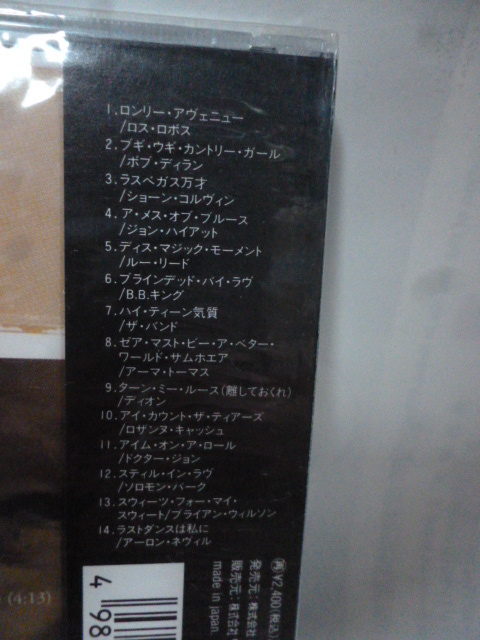 1. ロンリー・アヴェニュー
/ロス・ロボス
2. ブギ・ウギ・カントリー・ガール
/ボブ・ディラン
3. ラスベガス万才
/ショーン・コルヴィン
4. ア・メス・オブ・ブルース
/ジョン・ハイアット
5. ディス・マジック・モーメント
/ルー・リード
6. ブラインデッド・バイ・ラヴ
/B.B.キング
7. ハイ・ティーン気質
/ザ・バンド
8. ゼア・マスト・ビー・ア・ベター・
ワールド・サムホエア
/アーマ・トーマス
9. ターン・ミー・ルース(離しておくれ)
/ディオン
10. アイ・カウント・ザ・ティアーズ
/ロザンヌ・キャッシュ
11. アイム・オン・ア・ロール
/ドクター・ジョン
12. スティル・イン・ラヴ
/ソロモン・バーク
13. スウィーツ・フォー・マイ・
スウィート/ブライアン・ウィルソン
14. ラストダンスは私に
/アーロン・ネヴィル
(4:13)
4 98
㊞¥2,400(税込)
発売元:株式会社
販売元:株式会社
made in japan.